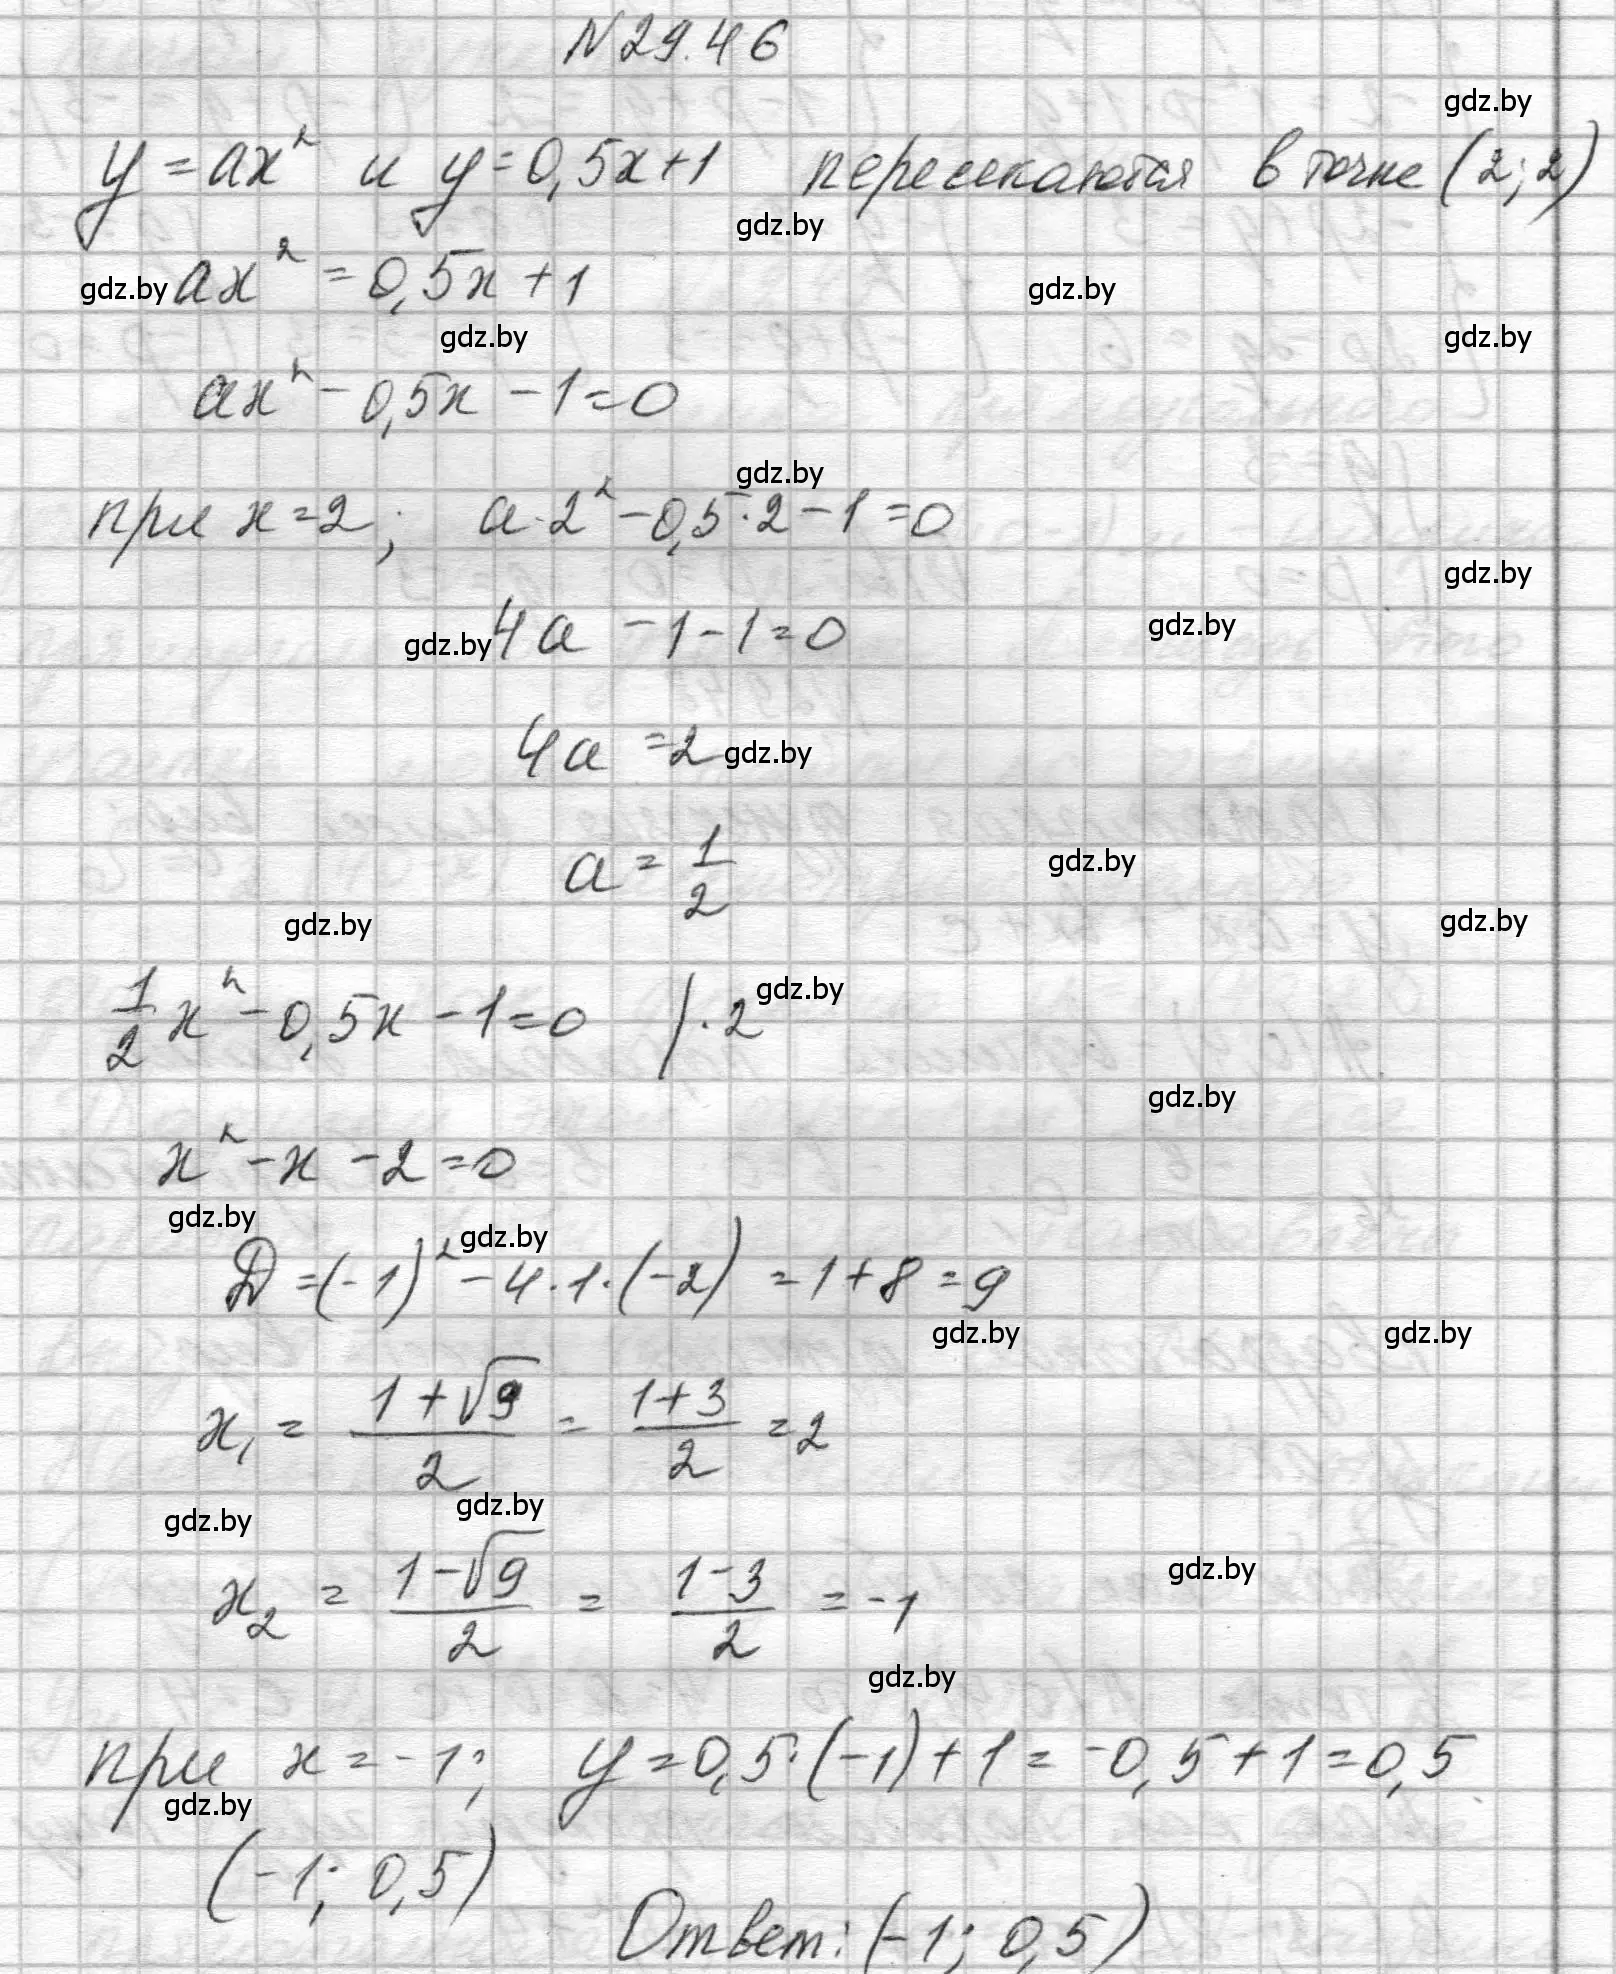 N 29.46
gdz.by
y = ax² и y = 0,5x + 1 пересекаются в точке (2; 2)
gdz.by
gdz.by ax² = 0,5x + 1 gdz.by
gdz.by gdz.by
ax² - 0,5x - 1 = 0
gdz.by
при x = 2; a · 2² - 0,5 · 2 - 1 = 0
gdz.by
gdz.by 4a - 1 - 1 = 0 gdz.by
4a = 2 gdz.by
a = 1/2 gdz.by
gdz.by gdz.by
1/2 x² - 0,5x - 1 = 0 / · 2 gdz.by
gdz.by
x² - x - 2 = 0
gdz.by gdz.by
D = (-1)² - 4 · 1 · (-2) = 1 + 8 = 9
gdz.by gdz.by
x₁ = (1 + √9)/2 = (1 + 3)/2 = 2
gdz.by gdz.by
x₂ = (1 - √9)/2 = (1 - 3)/2 = -1 gdz.by
gdz.by
при x = -1; y = 0,5 · (-1) + 1 = -0,5 + 1 = 0,5
gdz.by
(-1; 0,5)
Ответ: (-1; 0,5)